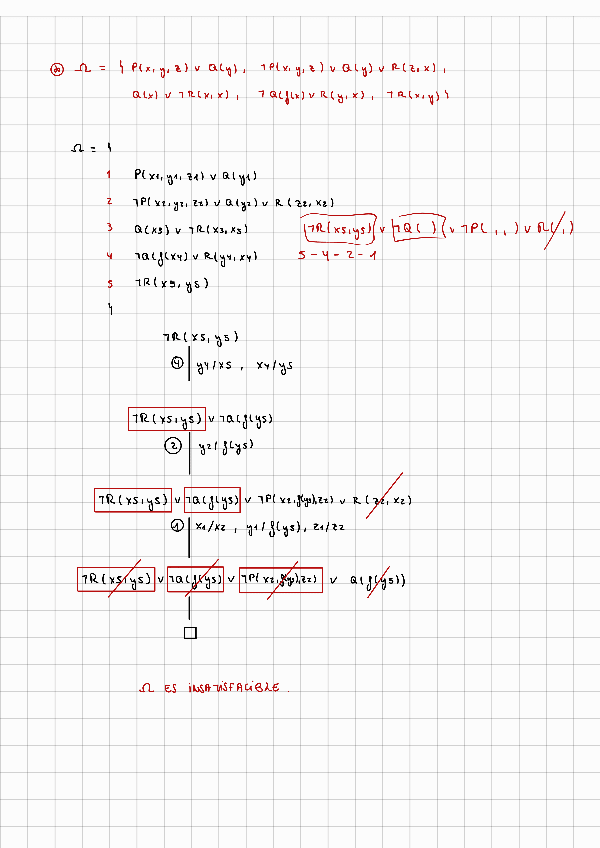 ⊛ Ω = { P(x,y,z) ∨ Q(y), ¬P(x,y,z) ∨ Q(y) ∨ R(z,x),
Q(x) ∨ ¬R(x,x), ¬Q(f(x) ∨ R(y,x), ¬R(x,y) }
Ω = {
1 P(x1,y1,z1) ∨ Q(y1)
2 ¬P(x2,y2,z2) ∨ Q(y2) ∨ R(z2,x2)
3 Q(x3) ∨ ¬R(x3,x3) ¬R(x5,y5) ∨ ¬Q( ) ∨ ¬P( , , ) ∨ R( , )
4 ¬Q(f(x4) ∨ R(y4,x4) 5-4-2-1
5 ¬R(x5,y5)
}
¬R(x5,y5)
④ y4/x5, x4/y5
¬R(x5,y5) ∨ ¬Q(f(y5)
② y2/f(y5)
¬R(x5,y5) ∨ ¬Q(f(y5) ∨ ¬P(x2,f(y5),z2) ∨ R(z2,x2)
① x1/x2, y1/f(y5), z1/z2
¬R(x5,y5) ∨ ¬Q(f(y5) ∨ ¬P(x2,f(y5),z2) ∨ Q(f(y5))
□
Ω ES INSATISFACIBLE.